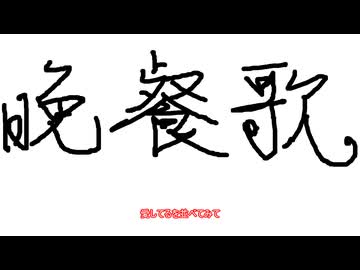 晩餐歌
愛してるを並べてみて